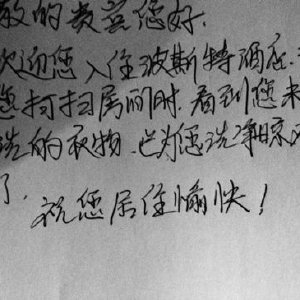 敬的贵宾您好.
欢迎您入住波斯特酒店.
您打扫房间时.看到您未
洗的衣物.已为您洗净晾
了.
祝您居住愉快!